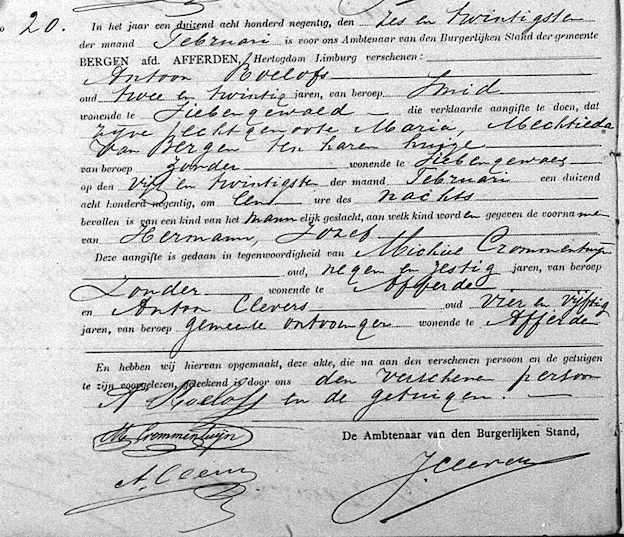 20. In het jaar een duizend acht honderd negentig, den zes en twintigsten
der maand Februari is voor ons Ambtenaar van den Burgerlijken Stand der gemeente
BERGEN afd. AFFERDEN, Hertogdom Limburg verschenen:
Antoon Roelofs
oud twee en twintig jaren, van beroep Smid
wonende te Siebengewald die verklaarde aangifte te doen, dat
zijne echtgenoote Maria, Mechtilda
van Bergen ten haren huize
van beroep zonder wonende te Siebengewald
op den vijf en twintigsten der maand Februari een duizend
acht honderd negentig, om een ure des nachts
bevallen is van een kind van het mannelijk geslacht, aan welk kind worden gegeven de voornamen
van Hermann, Jozef
Deze aangifte is gedaan in tegenwoordigheid van Michiel Crommentuijn
oud, negen en zestig jaren, van beroep
zonder wonende te Afferden
en Anton Clevers oud vier en vijftig
jaren, van beroep gemeente ontvanger wonende te Afferden
En hebben wij hiervan opgemaakt, deze akte, die na aan den verschenen persoon en de getuigen
te zijn voorgelezen, geteekend is door ons den verschenen persoon
en de getuigen.
A Roelofs
M Crommentuijn
De Ambtenaar van den Burgerlijken Stand,